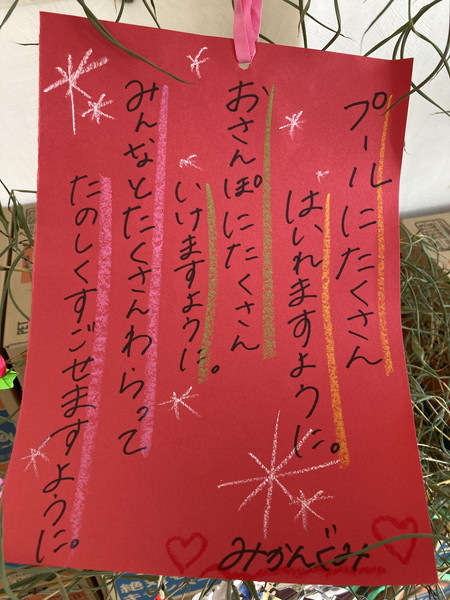 プールにたくさん
はいれますように。
おさんぽにたくさん
いけますように。
みんなとたくさんわらって
たのしくすごせますように。
みかんぐみ